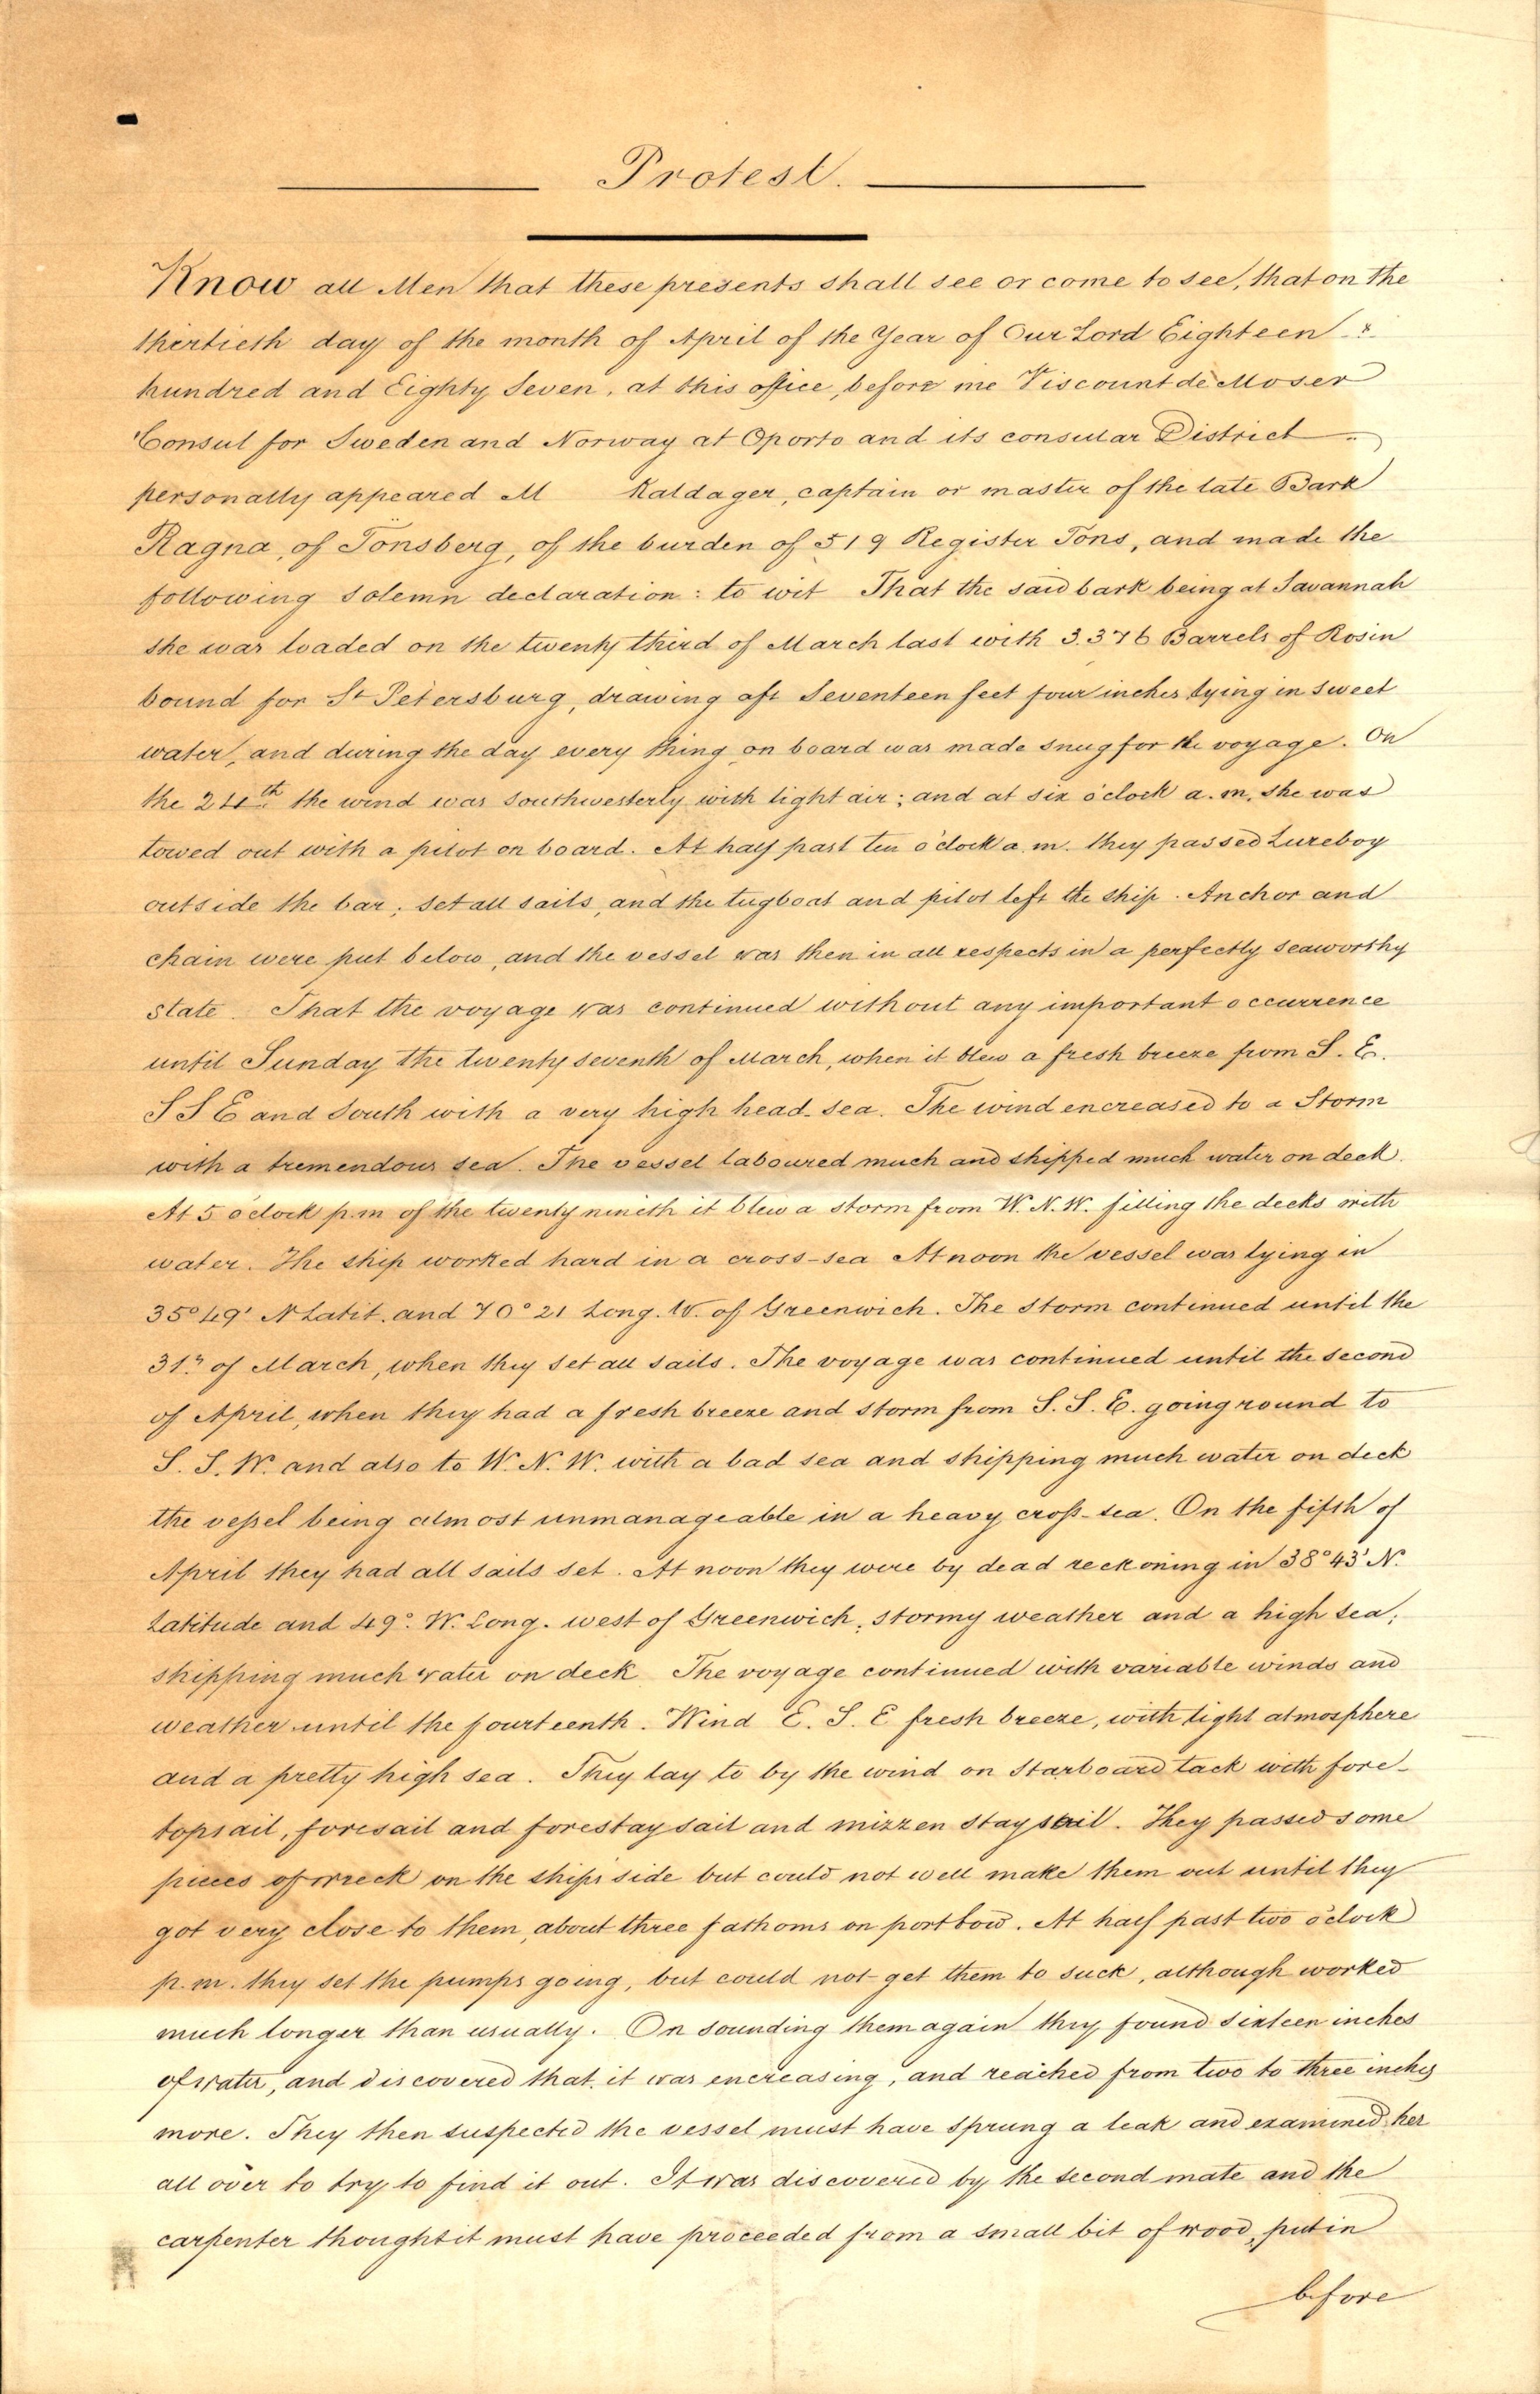 Protest.
Know all Men that these presents shall see or come to see, that on the
thirtieth day of the month of April of the Year of Our Lord Eighteen
hundred and Eighty Seven, at this office, before me Viscount de Moser
Consul for Sweden and Norway at Oporto and its consular District
personally appeared M Kaldager, captain or master of the late Bark
Ragna, of Tönsberg, of the burden of 519 Register Tons, and made the
following solemn declaration: to wit That the said bark being at Savannah
she was loaded on the twenty third of March last with 3.376 Barrels of Rosin
bound for St Petersburg, drawing aft Seventeen feet four inches lying in sweet
water, and during the day every thing on board was made snug for the voyage. On
the 24th the wind was southwesterly with light air; and at six o'clock a.m. she was
towed out with a pilot on board. At half past ten o'clock a.m. they passed Lureboy
outside the bar; set all sails, and the tugboat and pilot left the ship. Anchor and
chain were put below, and the vessel was then in all respects in a perfectly seaworthy
state. That the voyage was continued without any important occurrence
until Sunday the twenty seventh of March, when it blew a fresh breeze from S. E.
S S E and South with a very high head-sea. The wind encreased to a Storm
with a tremendous sea. The vessel laboured much and shipped much water on deck.
At 5 o'clock p.m of the twenty nineth it blew a storm from W. N. W. filling the decks with
water. The ship worked hard in a cross-sea At noon the vessel was lying in
35° 49' N Latit. and 70° 21 Long. W. of Greenwich. The storm continued until the
31st of March, when they set all sails. The voyage was continued until the second
of April, when they had a fresh breeze and storm from S. S. E. going round to
S. S. W. and also to W. N. W. with a bad sea and shipping much water on deck
the vessel being almost unmanageable in a heavy cross-sea. On the fifth of
April they had all sails set. At noon they were by dead reckoning in 38° 43' N.
Latitude and 49°. W. Long. west of Greenwich, stormy weather and a high sea;
shipping much water on deck The voyage continued with variable winds and
weather until the fourteenth. Wind E. S. E fresh breeze, with light atmosphere
and a pretty high sea. They lay to by the wind on Starboard tack with fore-
topsail, foresail and forestaysail and mizzen staysail. They passed some
pieces of wreck on the ships side but could not well make them out until they
got very close to them, about three fathoms on port bow. At half past two o'clock
p.m. they set the pumps going, but could not get them to suck, although worked
much longer than usually. On sounding them again they found sixteen inches
of water, and discovered that it was encreasing, and reached from two to three inches
more. They then suspected the vessel must have sprung a leak and examined her
all over to try to find it out. It was discovered by the second mate and the
carpenter thought it must have proceeded from a small bit of wood, put in
before